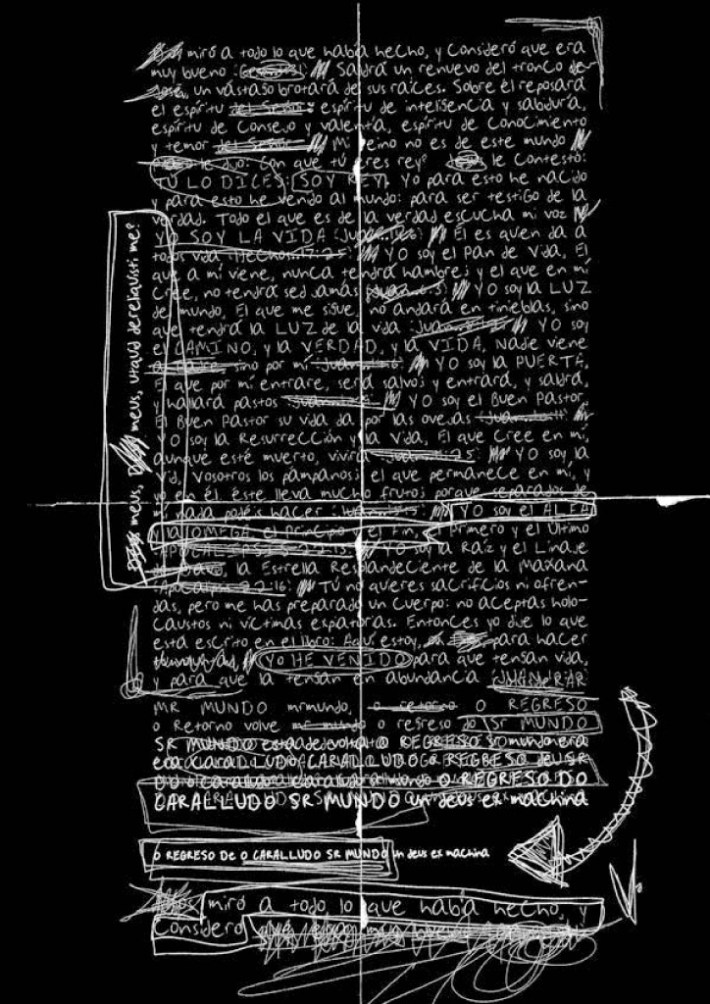 miró a todo lo que había hecho, y consideró que era
muy bueno :Genesis1: /// Saldrá un renuevo del tronco de
José, un vástago brotará de sus raíces. Sobre él reposará
el espíritu del Señor: espíritu de inteligencia y sabiduría,
espíritu de consejo y valentía, espíritu de conocimiento
y temor del Señor. /// Mi reino no es de este mundo ///
le dijo: Con que tú eres rey? le contestó:
TÚ LO DICES: SOY REY. Yo para esto he nacido
y para esto he venido al mundo: para ser testigo de la
verdad. Todo el que es de la verdad escucha mi voz ///
YO SOY LA VIDA :Juan /// Él es quien da a
todos vida :Hechos.17:25: /// YO soy el Pan de Vida, El
que a mí viene, nunca tendrá hambre; y el que en mí
cree, no tendrá sed jamás /// YO soy la LUZ
del mundo, El que me sigue, no andará en tinieblas, sino
que tendrá la LUZ de la vida :Juan /// YO soy
el CAMINO, y la VERDAD, y la VIDA, Nadie viene
a Padre sino por mí :Juan /// YO soy la PUERTA,
El que por mí entrare, será salvo; y entrará, y saldrá,
y hallará pastos /// YO soy el Buen Pastor,
El Buen Pastor su vida da por las ovejas ///
YO soy la Resurrección y la vida, Él que cree en mí,
aunque esté muerto, vivirá /// YO soy la
vid, vosotros los pámpanos: el que permanece en mí, y
yo en él éste lleva mucho fruto; porque separados de
mí nada podéis hacer YO soy el ALFA
y la OMEGA, el principio y el fin, el Primero y el último
:APOCALEPSIS 22:13: /// YO soy la Raíz y el Linaje
de David, la Estrella Resplandeciente de la Mañana
:Apocalipsis 22:16: /// Tú no quieres sacrificios ni ofren-
das, pero me has preparado un cuerpo: no aceptas holo-
caustos ni víctimas expiatorias. Entonces yo dije lo que
está escrito en el libro: Aquí estoy, para hacer
tu voluntad, /// YO HE VENIDO para que tengan vida,
y para que la tengan en abundancia
meus, meus, utquid dereliquisti me?
MR MUNDO mrmundo, o retorno O REGRESO
o Retorno volve mr mundo o regreso do SR MUNDO
SR MUNDO está de volta O REGRESO
CARALLUDO O REGRESO
O REGRESO DO
CARALLUDO SR MUNDO un deus ex machina
O REGRESO DE O CARALLUDO SR MUNDO un deus ex machina
miró a todo lo que había hecho, y
consideró